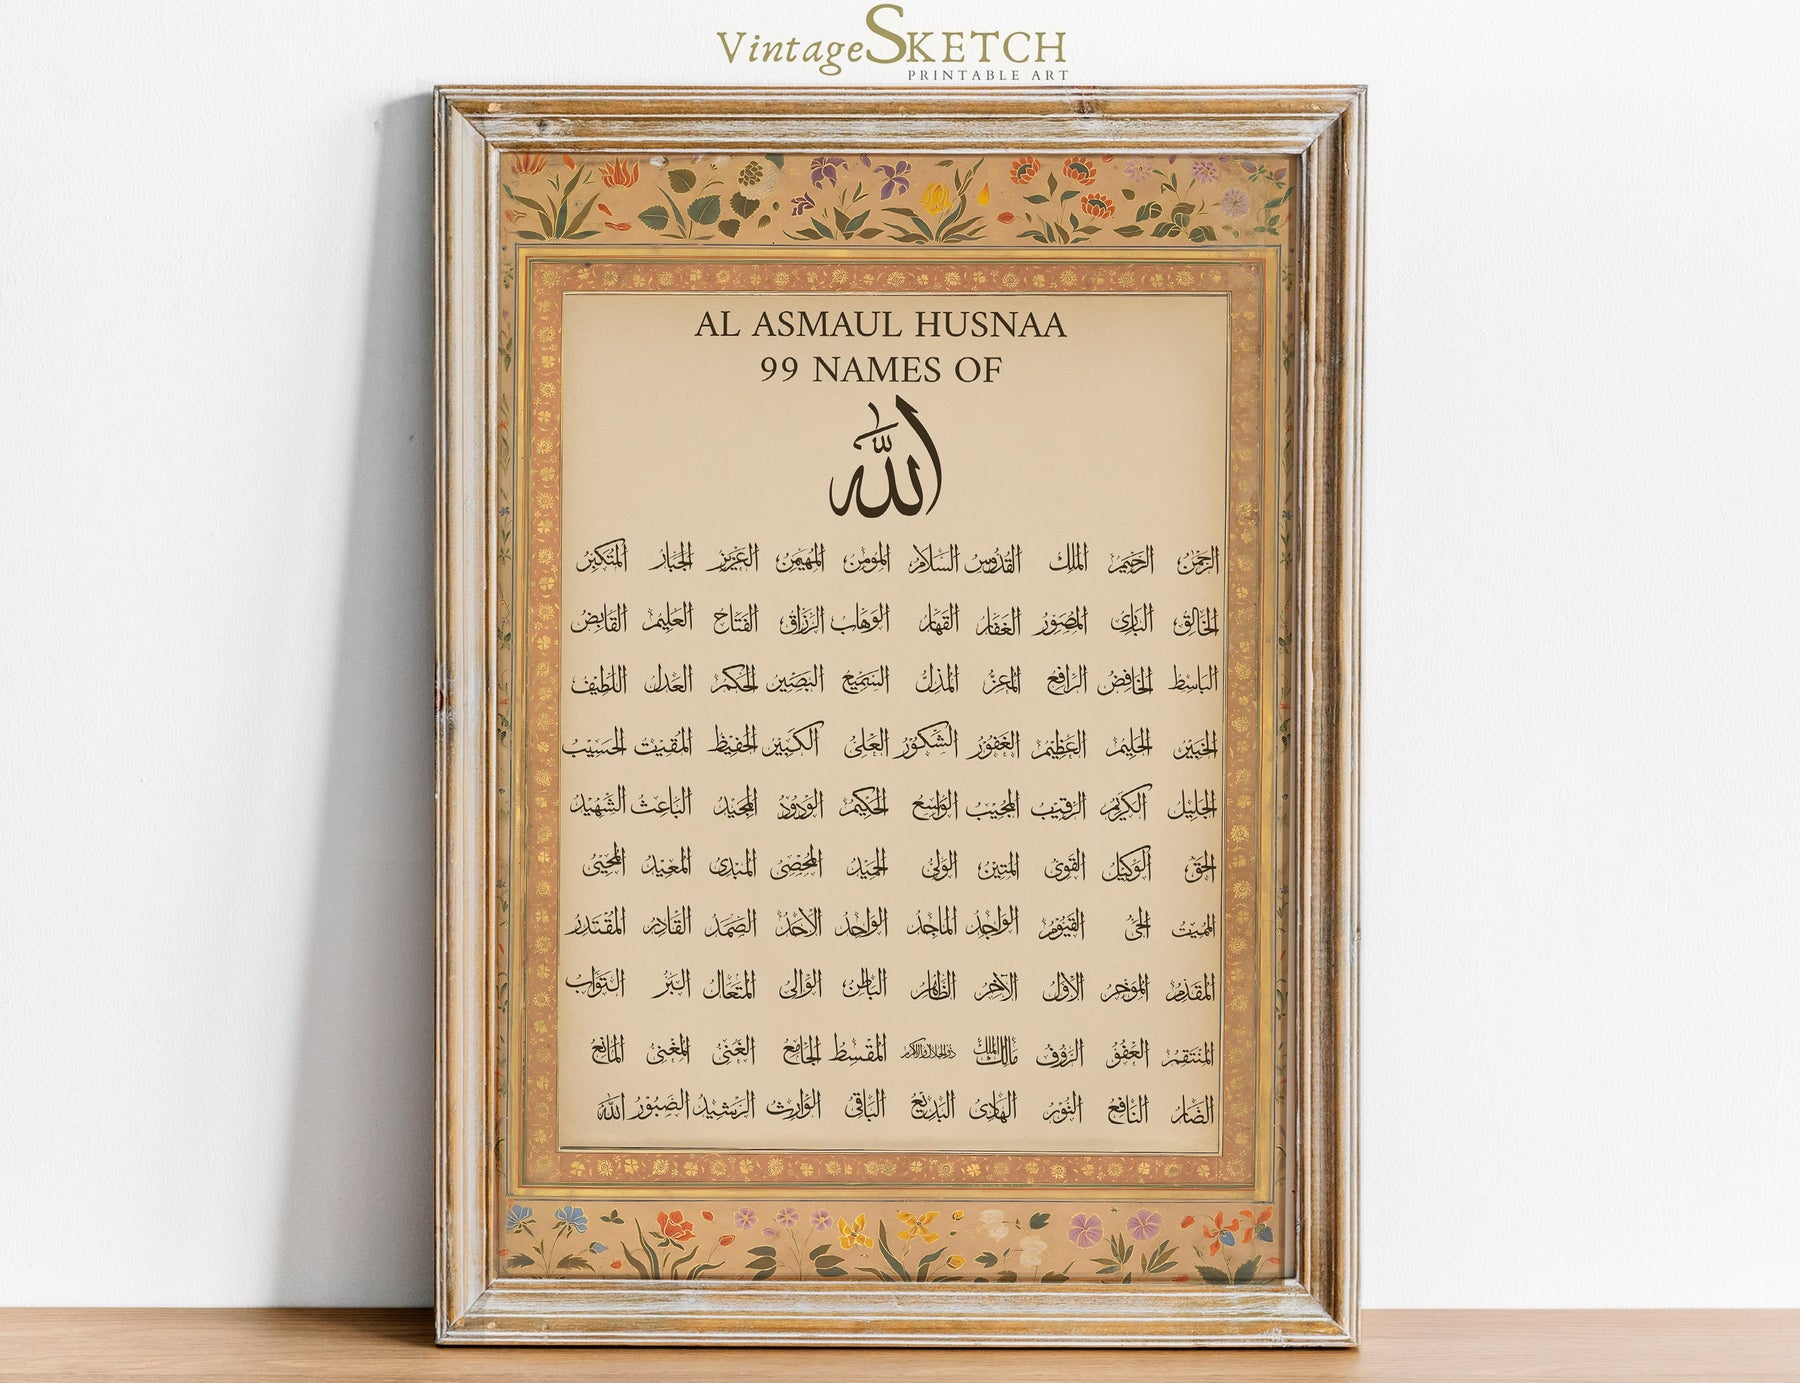 VintageSKETCH
PRINTABLE ART
AL ASMAUL HUSNAA
99 NAMES OF
الله
الرحمن الرحيم الملك القدوس السلام المؤمن المهيمن العزيز الجبار المتكبر
الخالق البارئ المصور الغفار القهار الوهاب الرزاق الفتاح العليم القابض
الباسط الخافض الرافع المعز المذل السميع البصير الحكم العدل اللطيف
الخبير الحليم العظيم الغفور الشكور العلي الكبير الحفيظ المقيت الحسيب
الجليل الكريم الرقيب المجيب الواسع الحكيم الودود المجيد الباعث الشهيد
الحق الوكيل القوي المتين الولي الحميد المحصي المبدئ المعيد المحيي
المميت الحي القيوم الواجد الماجد الواحد الأحد الصمد القادر المقتدر
المقدم المؤخر الأول الآخر الظاهر الباطن الوالي المتعال البر التواب
المنتقم العفو الرؤوف مالك الملك ذو الجلال والإكرام المقسط الجامع الغني المغني المانع
الضار النافع النور الهادي البديع الباقي الوارث الرشيد الصبور الله